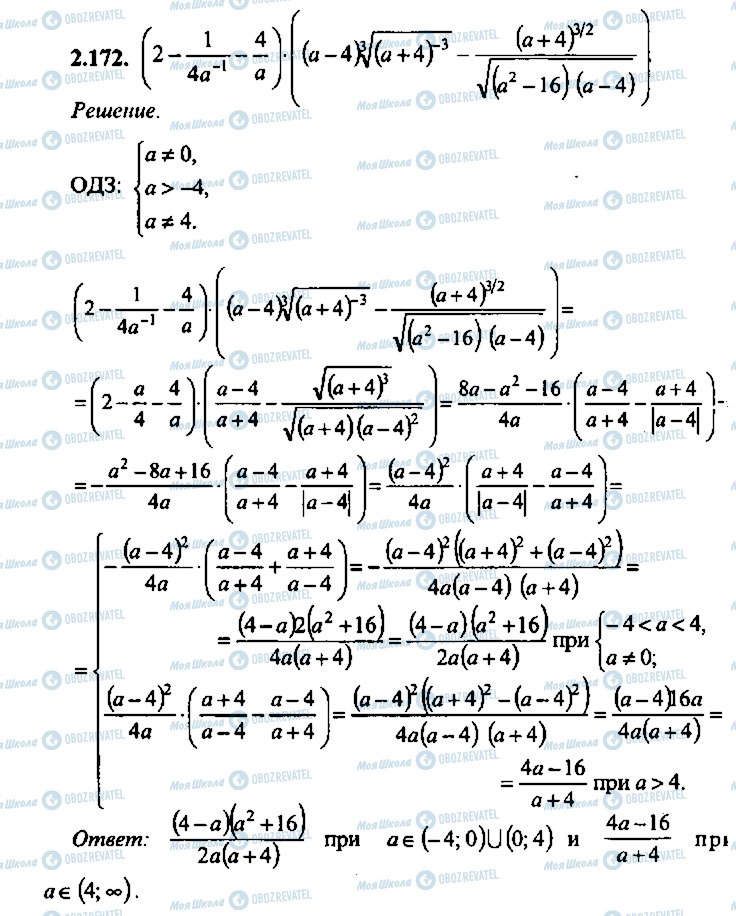 2.172. (2 − 1/(4a⁻¹) − 4/a) · ((a − 4)∛((a + 4)⁻³) − (a + 4)^(3/2)/√((a² − 16)(a − 4))).
Решение.
ОДЗ: { a ≠ 0, a > −4, a ≠ 4.
(2 − 1/(4a⁻¹) − 4/a) · ((a − 4)∛((a + 4)⁻³) − (a + 4)^(3/2)/√((a² − 16)(a − 4))) =
= (2 − a/4 − 4/a) · ((a − 4)/(a + 4) − √((a + 4)³)/√((a + 4)(a − 4)²)) = (8a − a² − 16)/(4a) · ((a − 4)/(a + 4) − (a + 4)/|a − 4|) −
= −(a² − 8a + 16)/(4a) · ((a − 4)/(a + 4) − (a + 4)/|a − 4|) = (a − 4)²/(4a) · ((a + 4)/|a − 4| − (a − 4)/(a + 4)) =
= { −(a − 4)²/(4a) · ((a − 4)/(a + 4) + (a + 4)/(a − 4)) = −(a − 4)²((a + 4)² + (a − 4)²)/(4a(a − 4)(a + 4)) =
= (4 − a)2(a² + 16)/(4a(a + 4)) = (4 − a)(a² + 16)/(2a(a + 4)) при { −4 < a < 4, a ≠ 0;
(a − 4)²/(4a) · ((a + 4)/(a − 4) − (a − 4)/(a + 4)) = (a − 4)²((a + 4)² − (a − 4)²)/(4a(a − 4)(a + 4)) = (a − 4)16a/(4a(a + 4)) =
= (4a − 16)/(a + 4) при a > 4.
Ответ: (4 − a)(a² + 16)/(2a(a + 4)) при a ∈ (−4; 0)∪(0; 4) и (4a − 16)/(a + 4) при
a ∈ (4; ∞).